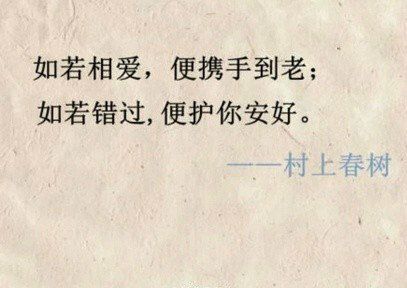 如若相爱，便携手到老；
如若错过,便护你安好。
——村上春树